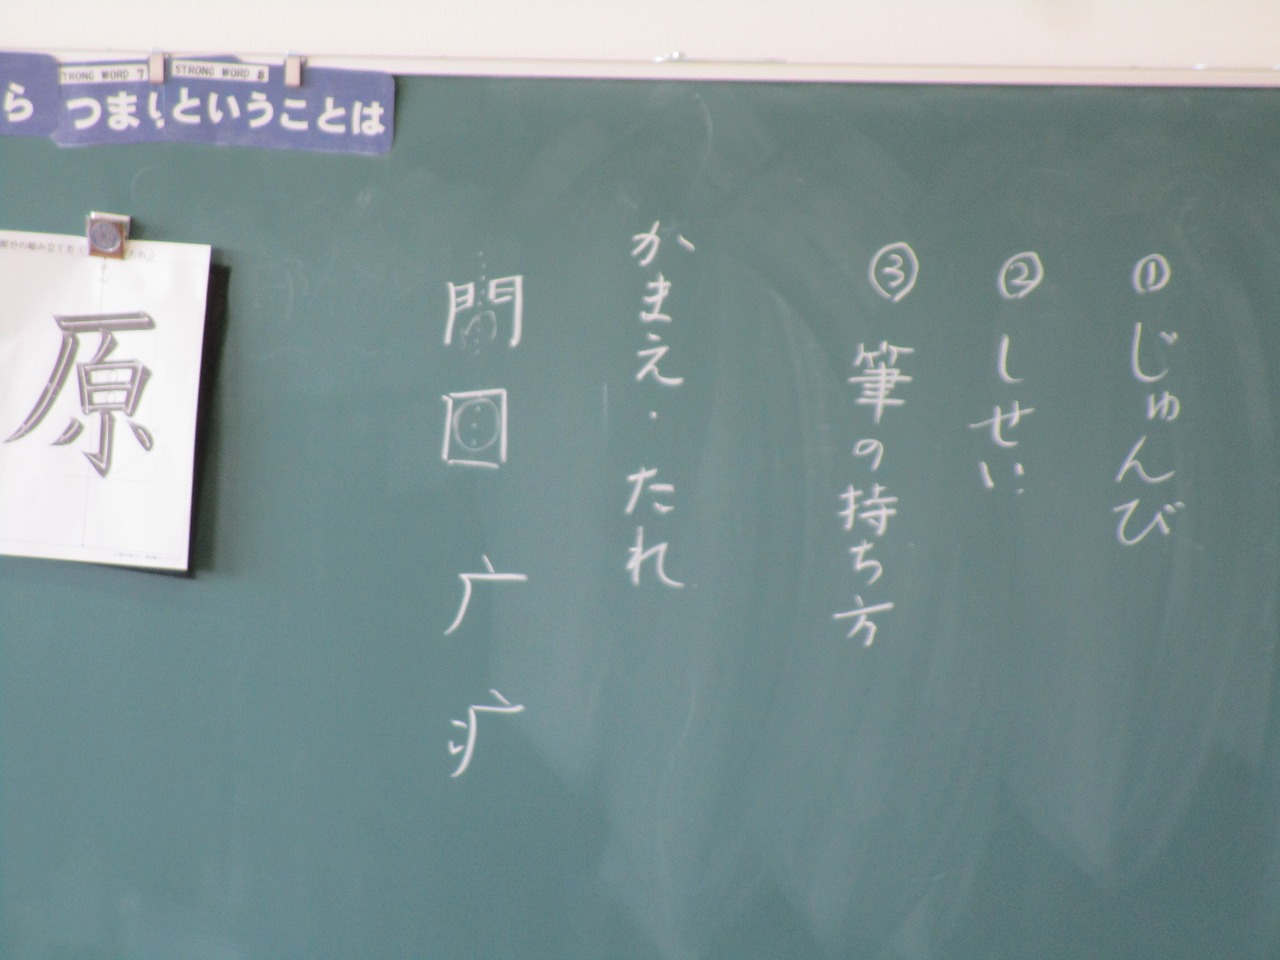 ① じゅんび
② しせい
③ 筆の持ち方
かまえ・たれ
門 囗 广 疒
STRONG WORD 8
ということは
TRONG WORD 7
つまり
ら
原